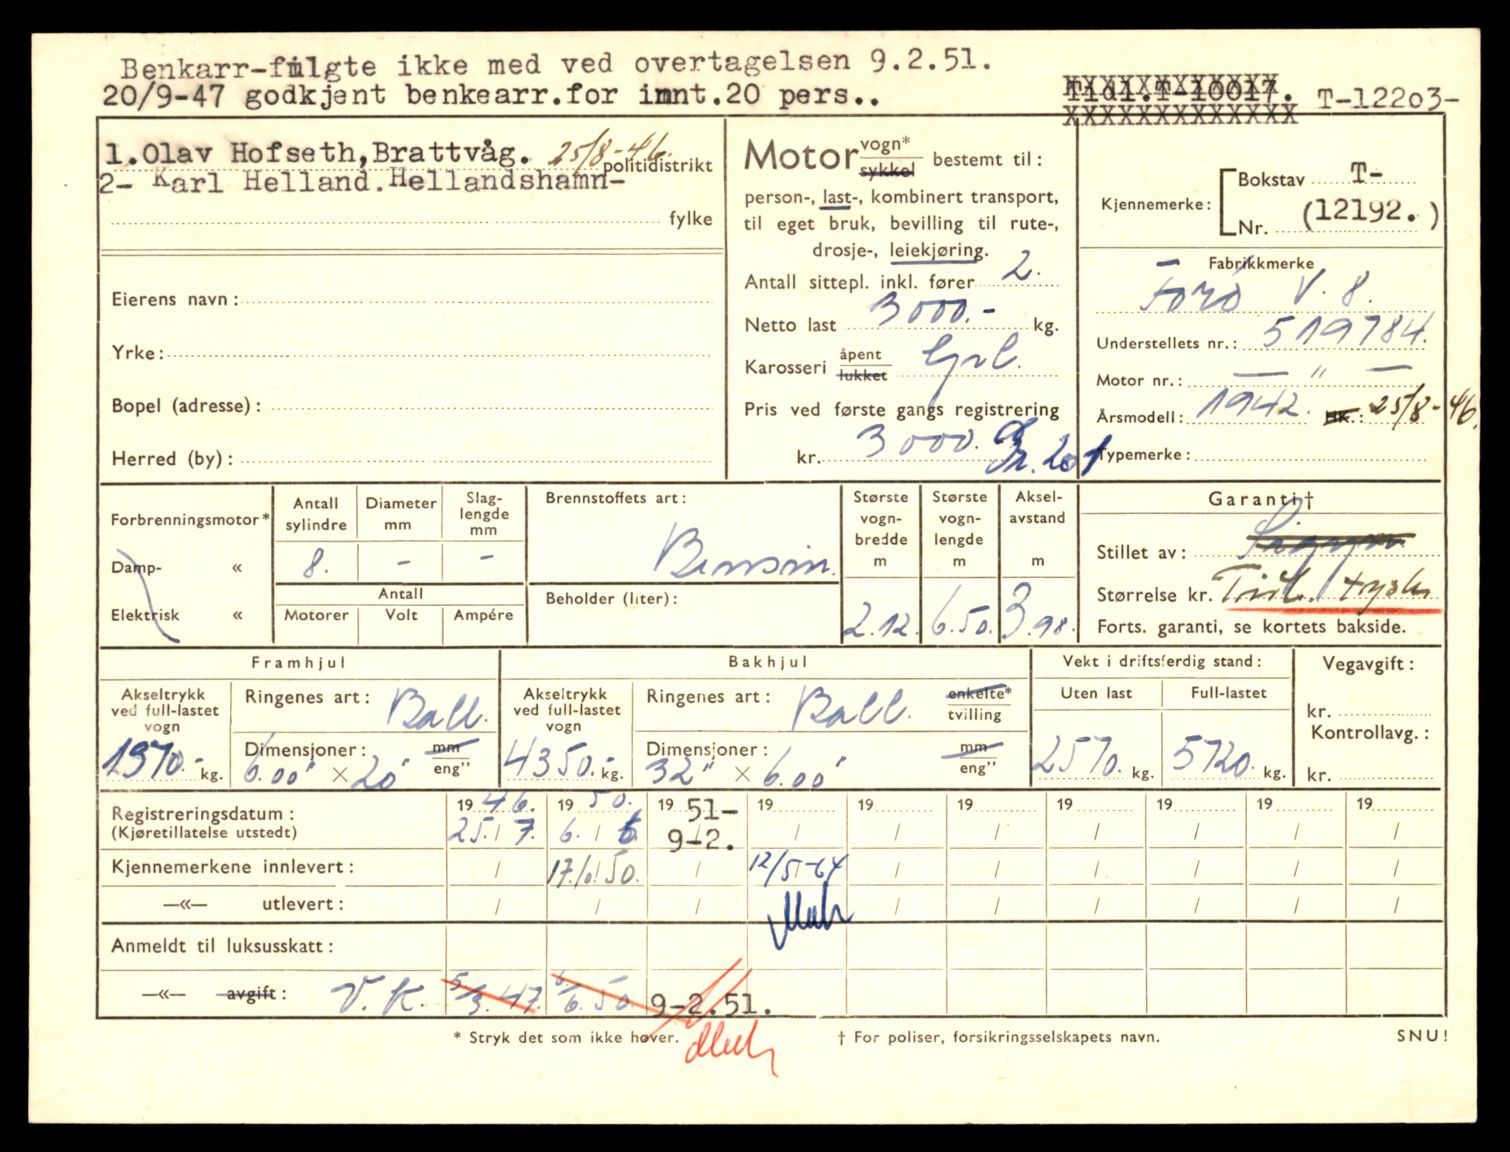 Benkarr-fulgte ikke med ved overtagelsen 9.2.51.
20/9-47 godkjent benkearr.for innt.20 pers..
Tidl.T-10017. T-12203-
1.Olav Hofseth,Brattvåg. 25/8-46. politidistrikt
2- Karl Helland.Hellandshamn-
fylke
Eierens navn:
Yrke:
Bopel (adresse):
Herred (by):
Motor vogn* sykkel bestemt til:
person-, last-, kombinert transport,
til eget bruk, bevilling til rute-,
drosje-, leiekjøring.
Antall sittepl. inkl. fører 2.
Netto last 3000.- kg.
Karosseri åpent lukket
Pris ved første gangs registrering
kr. 3000.
Kjennemerke: Bokstav T-
Nr. (12192.)
Fabrikkmerke
Ford V.8.
Understellets nr.: 519784.
Motor nr.: — " —
Årsmodell: 1942. HK.: 25/8-46.
Typemerke:
Forbrenningsmotor*
Damp- «
Elektrisk «
Antall sylindre 8.
Diameter mm -
Slag-lengde mm -
Antall
Motorer Volt Ampére
Brennstoffets art:
Bensin.
Beholder (liter):
Største vogn-bredde m 2.12.
Største vogn-lengde m 6.50.
Aksel-avstand m 3.98.
Garanti†
Stillet av:
Størrelse kr.
Forts. garanti, se kortets bakside.
Framhjul
Akseltrykk ved full-lastet vogn 1370.- kg.
Ringenes art: Ball.
Dimensjoner: mm eng"
6.00" × 20"
Bakhjul
Akseltrykk ved full-lastet vogn 4350.- kg.
Ringenes art: Ball. enkelte* tvilling
Dimensjoner: mm eng"
32" × 6.00"
Vekt i driftsferdig stand:
Uten last Full-lastet
2570. kg. 5720. kg.
Vegavgift:
kr.
Kontrollavg.:
kr.
Registreringsdatum: 1946. 1950. 19 51- 19 19 19 19 19 19 19
(Kjøretillatelse utstedt) 25./7. 6./6. 9-2. / / / / / / /
Kjennemerkene innlevert: / 17./ 50. / 12/5-64 / / / / / /
—«— utlevert: / / / / / / / / /
Anmeldt til luksusskatt:
—«— avgift: V.K. 5/3.47. 6/6.50. 9-2.51.
* Stryk det som ikke høver. † For poliser, forsikringsselskapets navn. SNU!